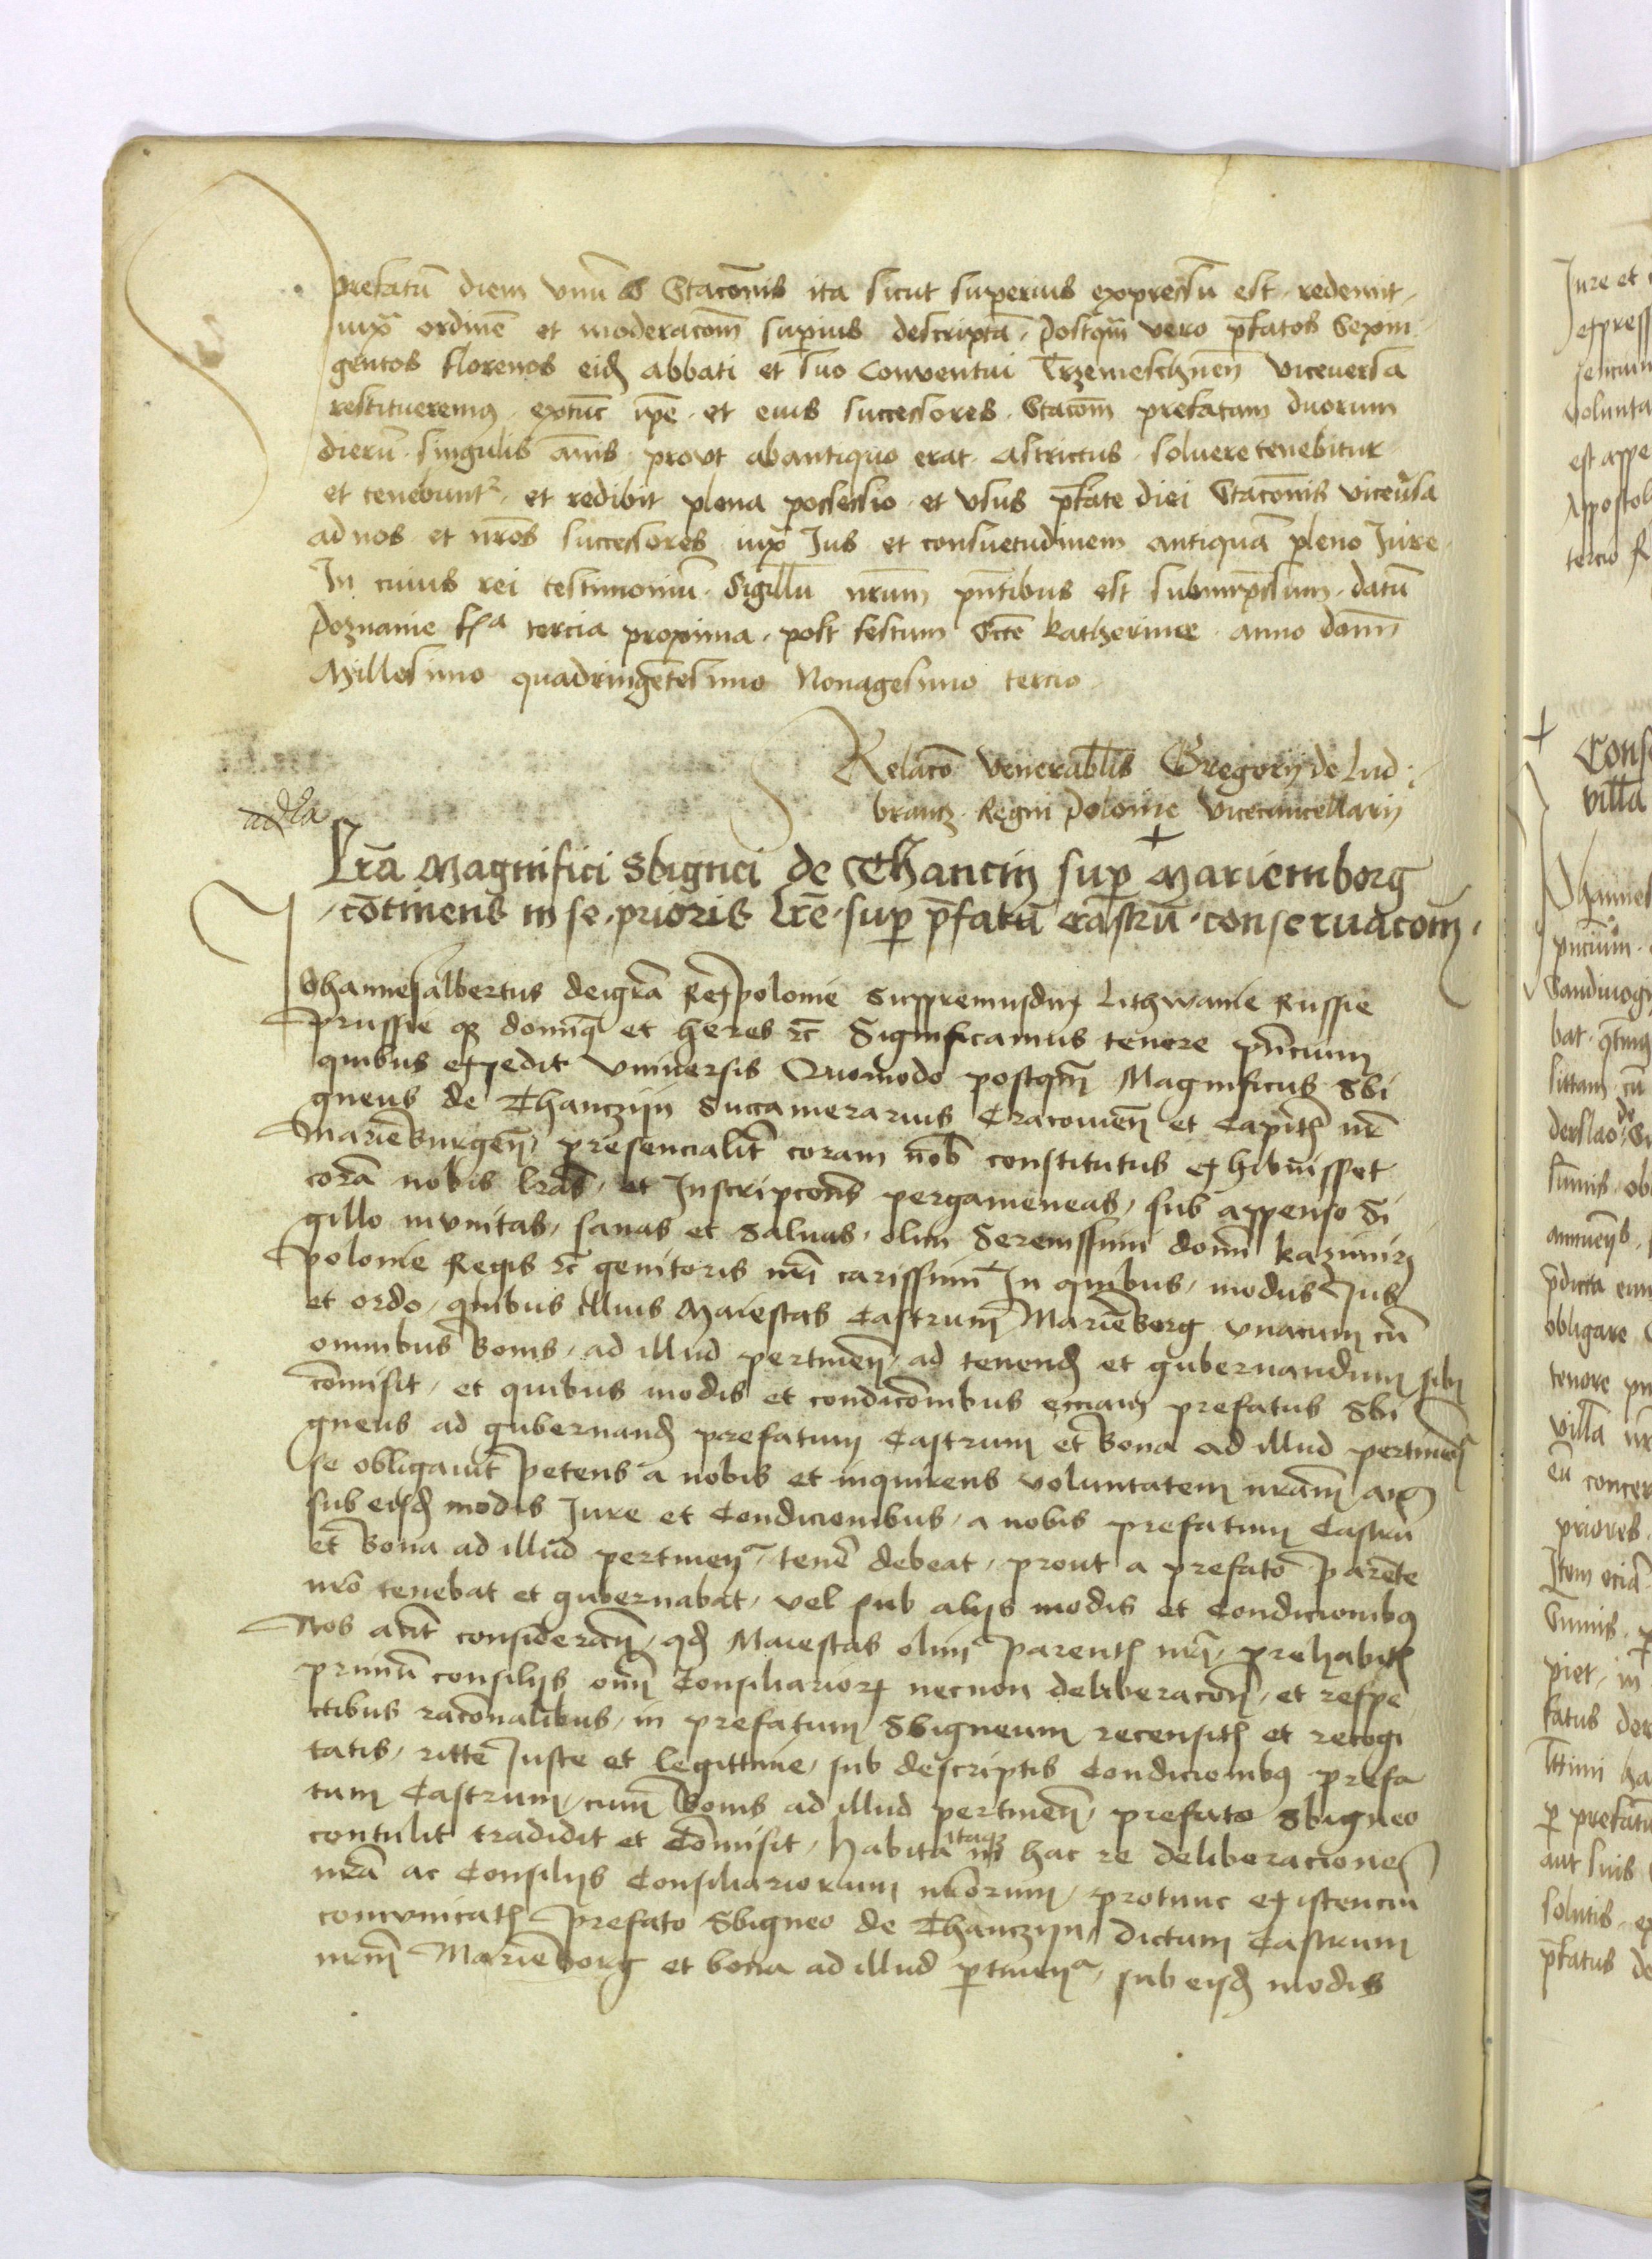 prefatū diem vnū Stacōnis ita sicut superius expressū est redemit
iuxᵃ ordinē et moderacōm supius descriptā postqm̄ vero p̄fatos Sexin
gentos florenos eid abbati et suo Conventui Trzemeschnen̄ viceversa
restitueremus extūc ip̄e et eius successores Stacōm prefatam duorum
dierū singulis ānis provt abantiquo erat astrictus soluere tenebitur
et tenebuntʳ et redibit plena possessio et vsus p̄fate diei Stacōnis viceūsa
ad nos et nr̄os successores iuxᵃ Jus et consuetudinem antiquā pleno Jure
In cuius rei testimoniū Sigillū nrūm pn̄tibus est subimp̄ssum datū
Poznanie fᵃ tercia proxima post festum Sctē katherinee anno domī
Millesimo quadringētesimo Nonagesimo tercio
Relacō venerabl̄is Gregorij de Lud
brantz Regni Polonie vicecancellarij
Lr̄a Magnifici Sbignei de Thancin sup Mariemborg
cōtinens in se prioris Lr̄e sup p̄fatū castrū conseruacōm
Johannes albertus dei gr̄a Rex polonie Suppremusdux Lithwanie Russie
prussie qz domīq et heres rc̄ Significamus tenore pn̄cium
quibus expedit vniuersis Quomodo postqm̄ Magnificus Sbi
gneus de Thanczijn Succamerarius Cracouien̄ et Capits nr̄
Mariēburgen̄ presencialit̄ coram nob̄ constitutus exhibuisset
corā nobis lrās et Inscripcōes pergameneas sub appenso Si
gillo mvnitas sanas et saluas olim Serenissimi domī kazimiri
polonie Regis rc̄ genitoris nr̄i carissimi In quibus modus Jus
et ordo quibus illius Maiestas Castrum Mariēborg vnacum cū
omnibus bonis ad illud pertinen̄ ad tenend et gubernandum sibi
cōmisit et quibus modis et condicōnibus eciam prefatus Sbi
gneus ad gubernand prefatum Castrum et bona ad illud pertinen̄
se obligauit petens a nobis et inquirens voluntatem nrām an
sub eisd modis Jure et Condicionibus a nobis prefatum Castrū
et bona ad illud pertinenᵃ tenē debeat prout a prefato parēte
nrō tenebat et gubernabat vel sub alijs modis et Condicionibus
Nos aūt consideran̄ qd Maiestas olim parentis nr̄i prehabitis
primū consilijs om̄i Consiliarior necnon deliberacōn̄ et respe
ctibus racōnalibus in prefatum Sbigneum recensitis et recogi
tatis ritte Juste et legittime sub descriptis Condicionibus prefa
tum Castrum cum bonis ad illud pertinen̄ prefato Sbigneo
contulit tradidit et Cōmisit habita itaqz in hac re deliberacione
nrā ac Consilijs Consiliariorum nrōrum protunc existenciū
comvnicatis prefato Sbigneo de Thanczijn dictum Castrum
nrm̄ Mariēborg et bona ad illud ptinenᵃ sub eisd modis